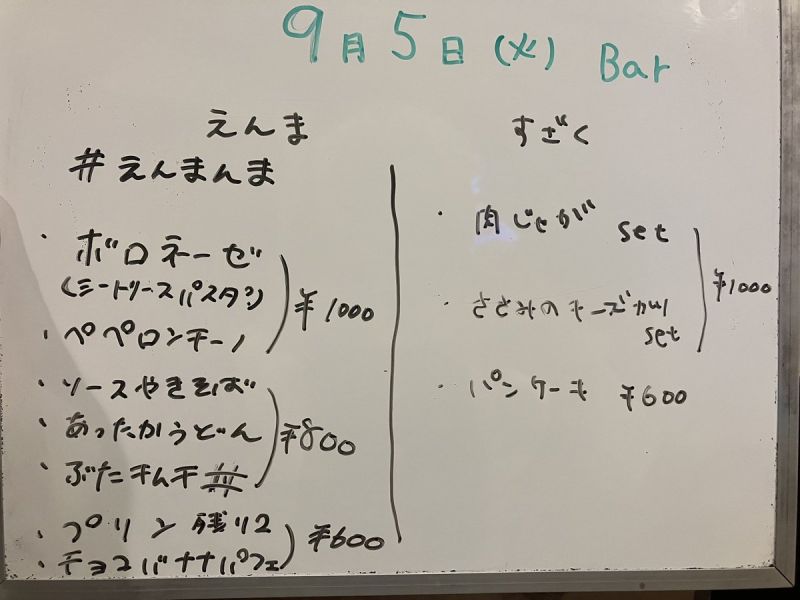 9月5日(火) Bar
えんま
#えんまんま
・ボロネーゼ
(ミートソースパスタ)
・ペペロンチーノ
¥1000
・ソースやきそば
・あったかうどん
・ぶたキムチ丼
¥800
・プリン 残り2
・チョコバナナパフェ
¥600
すざく
・肉じゃが set
・ささみのチーズかつ
set
¥1000
・パンケーキ ¥600